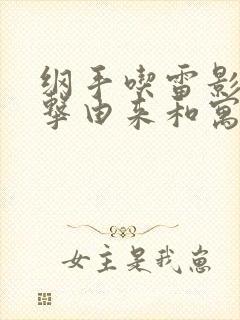 纲手喫雷影
擊由来和寓
女主是我崽